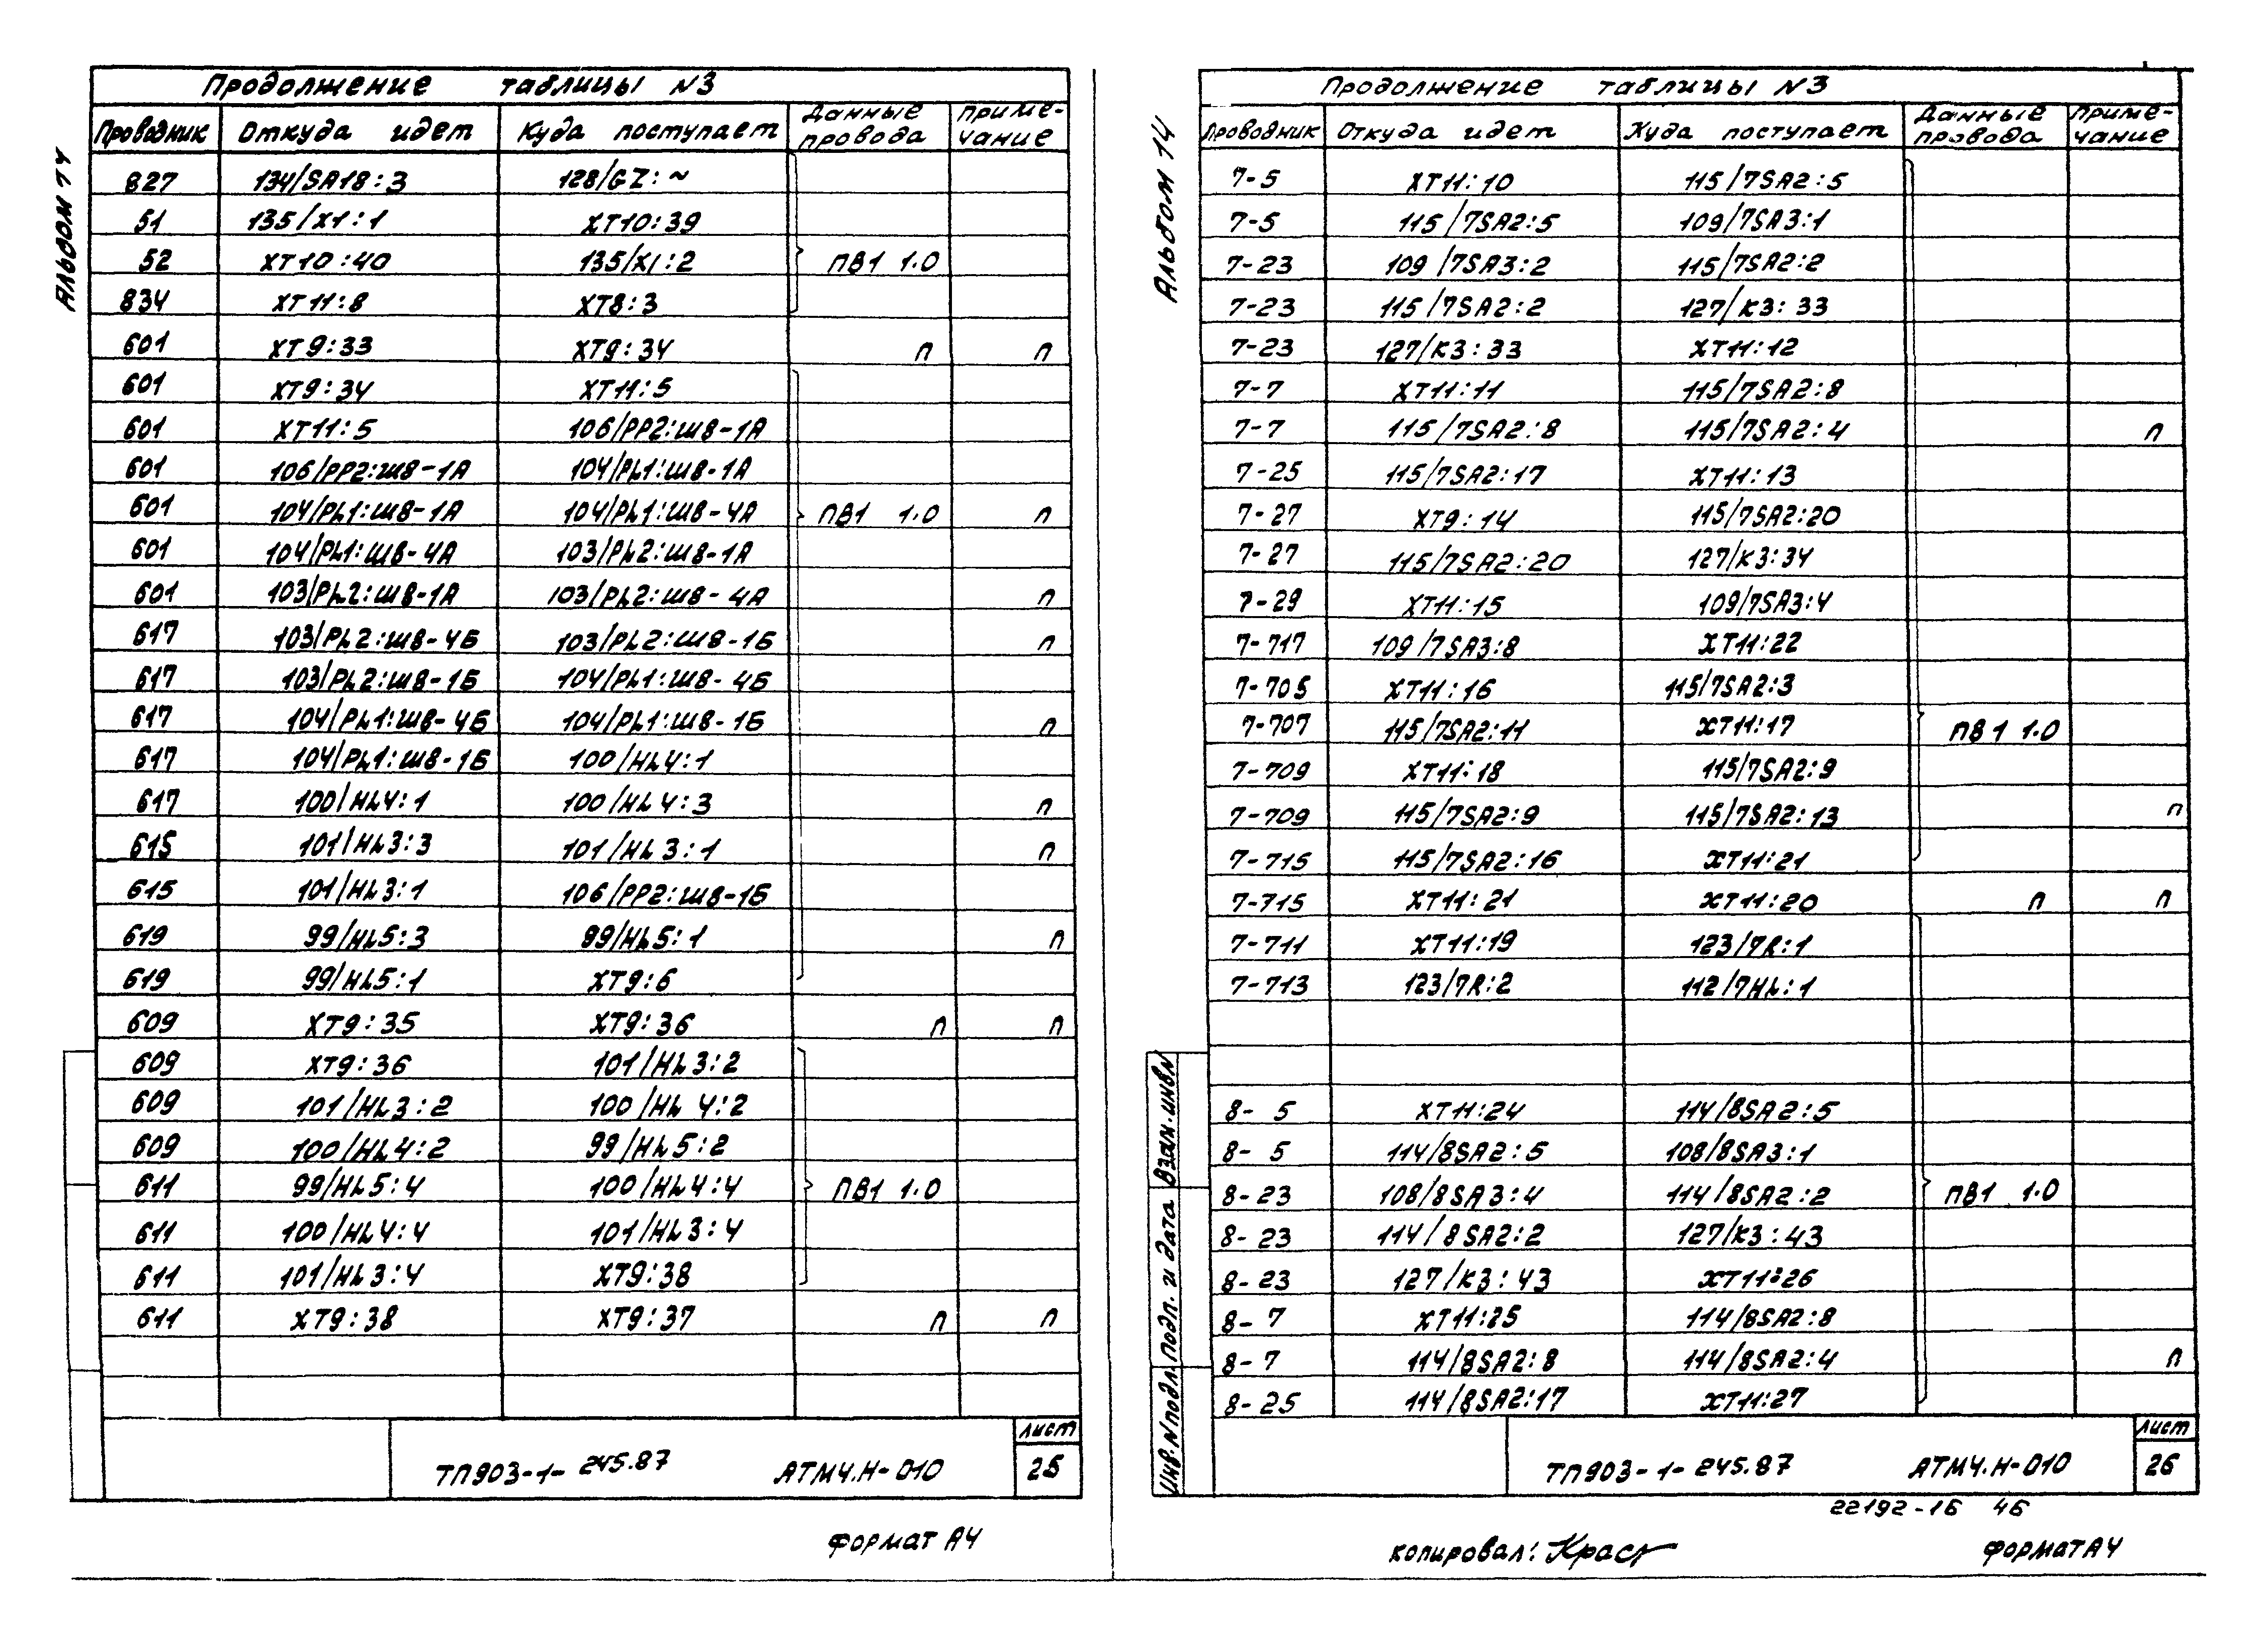 Альбом 14
Продолжение таблицы N3
Проводник Откуда идет Куда поступает Данные провода Примечание
827 134/SA18:3 128/GZ:~
51 135/X1:1 XT10:39
52 XT10:40 135/X1:2 ПВ1 1.0
834 XT11:8 XT8:3
601 XT9:33 XT9:34 п п
601 XT9:34 XT11:5
601 XT11:5 106/PP2:Ш8-1А
601 106/PP2:Ш8-1А 104/PL1:Ш8-1А
601 104/PL1:Ш8-1А 104/PL1:Ш8-4А ПВ1 1.0 п
601 104/PL1:Ш8-4А 103/PL2:Ш8-1А
601 103/PL2:Ш8-1А 103/PL2:Ш8-4А п
617 103/PL2:Ш8-4Б 103/PL2:Ш8-1Б п
617 103/PL2:Ш8-1Б 104/PL1:Ш8-4Б
617 104/PL1:Ш8-4Б 104/PL1:Ш8-1Б п
617 104/PL1:Ш8-1Б 100/HL4:1
617 100/HL4:1 100/HL4:3 п
615 101/HL3:3 101/HL3:1 п
615 101/HL3:1 106/PP2:Ш8-1Б
619 99/HL5:3 99/HL5:1 п
619 99/HL5:1 XT9:6
609 XT9:35 XT9:36 п п
609 XT9:36 101/HL3:2
609 101/HL3:2 100/HL4:2
609 100/HL4:2 99/HL5:2
611 99/HL5:4 100/HL4:4 ПВ1 1.0
611 100/HL4:4 101/HL3:4
611 101/HL3:4 XT9:38
611 XT9:38 XT9:37 п п
ТП903-1-245.87 АТМ4.Н-010 Лист 25
Формат А4
Альбом 14
Продолжение таблицы N3
Проводник Откуда идет Куда поступает Данные провода Примечание
7-5 XT11:10 115/7SA2:5
7-5 115/7SA2:5 109/7SA3:1
7-23 109/7SA3:2 115/7SA2:2
7-23 115/7SA2:2 127/K3:33
7-23 127/K3:33 XT11:12
7-7 XT11:11 115/7SA2:8
7-7 115/7SA2:8 115/7SA2:4 п
7-25 115/7SA2:17 XT11:13
7-27 XT9:14 115/7SA2:20
7-27 115/7SA2:20 127/K3:34
7-29 XT11:15 109/7SA3:4
7-717 109/7SA3:8 XT11:22
7-705 XT11:16 115/7SA2:3
7-707 115/7SA2:11 XT11:17 ПВ1 1.0
7-709 XT11:18 115/7SA2:9
7-709 115/7SA2:9 115/7SA2:13 п
7-715 115/7SA2:16 XT11:21
7-715 XT11:21 XT11:20 п п
7-711 XT11:19 123/7R:1
7-713 123/7R:2 112/7HL:1
8-5 XT11:24 114/8SA2:5
8-5 114/8SA2:5 108/8SA3:1
8-23 108/8SA3:4 114/8SA2:2 ПВ1 1.0
8-23 114/8SA2:2 127/K3:43
8-23 127/K3:43 XT11:26
8-7 XT11:25 114/8SA2:8
8-7 114/8SA2:8 114/8SA2:4 п
8-25 114/8SA2:17 XT11:27
Инв.N подл. Подп. и дата Взам.инв.N
ТП903-1-245.87 АТМ4.Н-010 Лист 26
22192-16 46
копировал: Формат А4